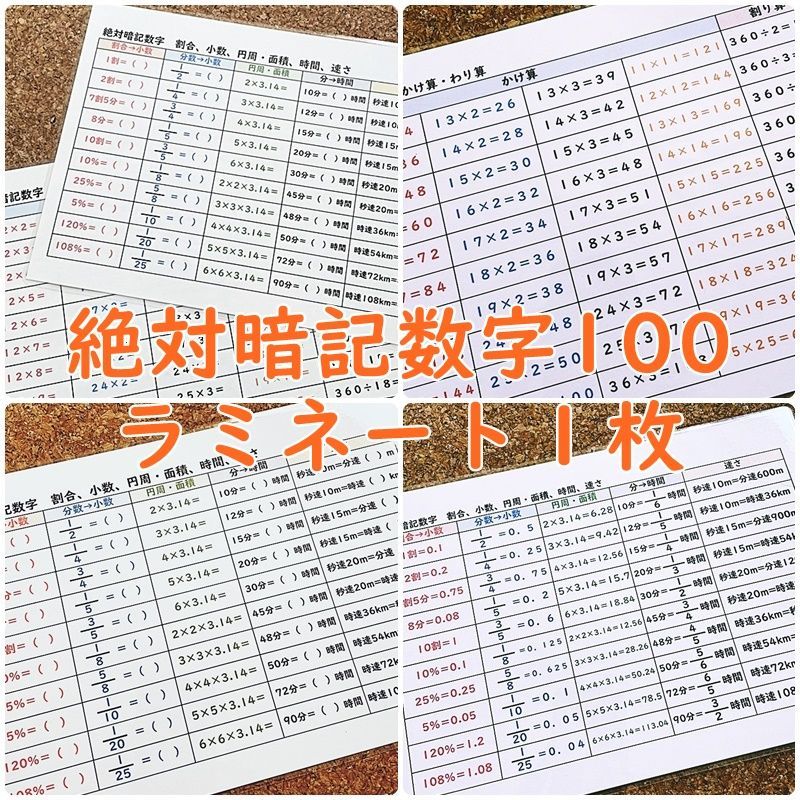 絶対暗記数字 割合、小数、円周・面積、時間、速さ
割合→小数 分数→小数 円周・面積 分→時間
1割=( ) 1/2=( ) 2×3.14= 10分=( )時間
2割=( ) 1/4=( ) 3×3.14= 12分=( )時間
7割5分=( ) 3/4=( ) 4×3.14= 15分=( )時間
8分=( ) 1/5=( ) 5×3.14= 20分=( )時間
10割=( ) 3/5=( ) 6×3.14= 30分=( )時間
10%=( ) 1/8=( ) 2×2×3.14= 45分=( )時間
25%=( ) 5/8=( ) 3×3×3.14= 48分=( )時間
5%=( ) 1/10=( ) 4×4×3.14= 50分=( )時間
120%=( ) 1/20=( ) 5×5×3.14= 72分=( )時間
108%=( ) 1/25=( ) 6×6×3.14= 90分=( )時間
時速36km=
時速54km=
時速72km=
時速108km=
12×5=
12×6=
12×7=
12×8=
24×2= 25×3= 360÷18=
かけ算・わり算 かけ算 割り算
13×2=26 13×3=39 11×11=121 360÷2=
14×2=28 14×3=42 12×12=144
15×2=30 15×3=45 13×13=169
16×2=32 16×3=48 14×14=196
17×2=34 17×3=51 15×15=225
18×2=36 18×3=54 16×16=256
19×2=38 19×3=57 17×17=289
24×3=72 18×18=324
36×3=
絶対暗記数字100
ラミネート1枚
暗記数字 割合、小数、円周・面積、時間、速さ
分数→小数 円周・面積 分→時間 速さ
1/2=( ) 2×3.14= 10分=( )時間
1/4=( ) 3×3.14= 12分=( )時間
3/4=( ) 4×3.14= 15分=( )時間
1/5=( ) 5×3.14= 20分=( )時間
3/5=( ) 6×3.14= 30分=( )時間
1/8=( ) 2×2×3.14= 45分=( )時間
5/8=( ) 3×3×3.14= 48分=( )時間
1/10=( ) 4×4×3.14= 50分=( )時間
120%=( ) 1/20=( ) 5×5×3.14= 72分=( )時間
108%=( ) 1/25=( ) 6×6×3.14= 90分=( )時間
暗記数字 割合、小数、円周・面積、時間、速さ
割合→小数 分数→小数 円周・面積 分→時間 速さ
1割=0.1 1/2=0.5 2×3.14=6.28 10分=1/6時間 秒速10m=分速600m
2割=0.2 1/4=0.25 3×3.14=9.42 12分=1/5時間 秒速10m=時速36km
7割5分=0.75 3/4=0.75 4×3.14=12.56 15分=1/4時間 秒速15m=分速900m
8分=0.08 1/5=0.2 5×3.14=15.7 20分=1/3時間 秒速15m=時速54k
10割=1 3/5=0.6 6×3.14=18.84 30分=1/2時間 秒速20m=分速12
10%=0.1 1/8=0.125 2×2×3.14=12.56 45分=3/4時間 秒速20m=時速
25%=0.25 5/8=0.625 3×3×3.14=28.26 48分=4/5時間 時速36km=
5%=0.05 1/10=0.1 4×4×3.14=50.24 50分=5/6時間 時速54km=
120%=1.2 1/20=0.05 5×5×3.14=78.5 72分=6/5時間 時速72k
108%=1.08 1/25=0.04 6×6×3.14=113.04 90分=3/2時間 時速108